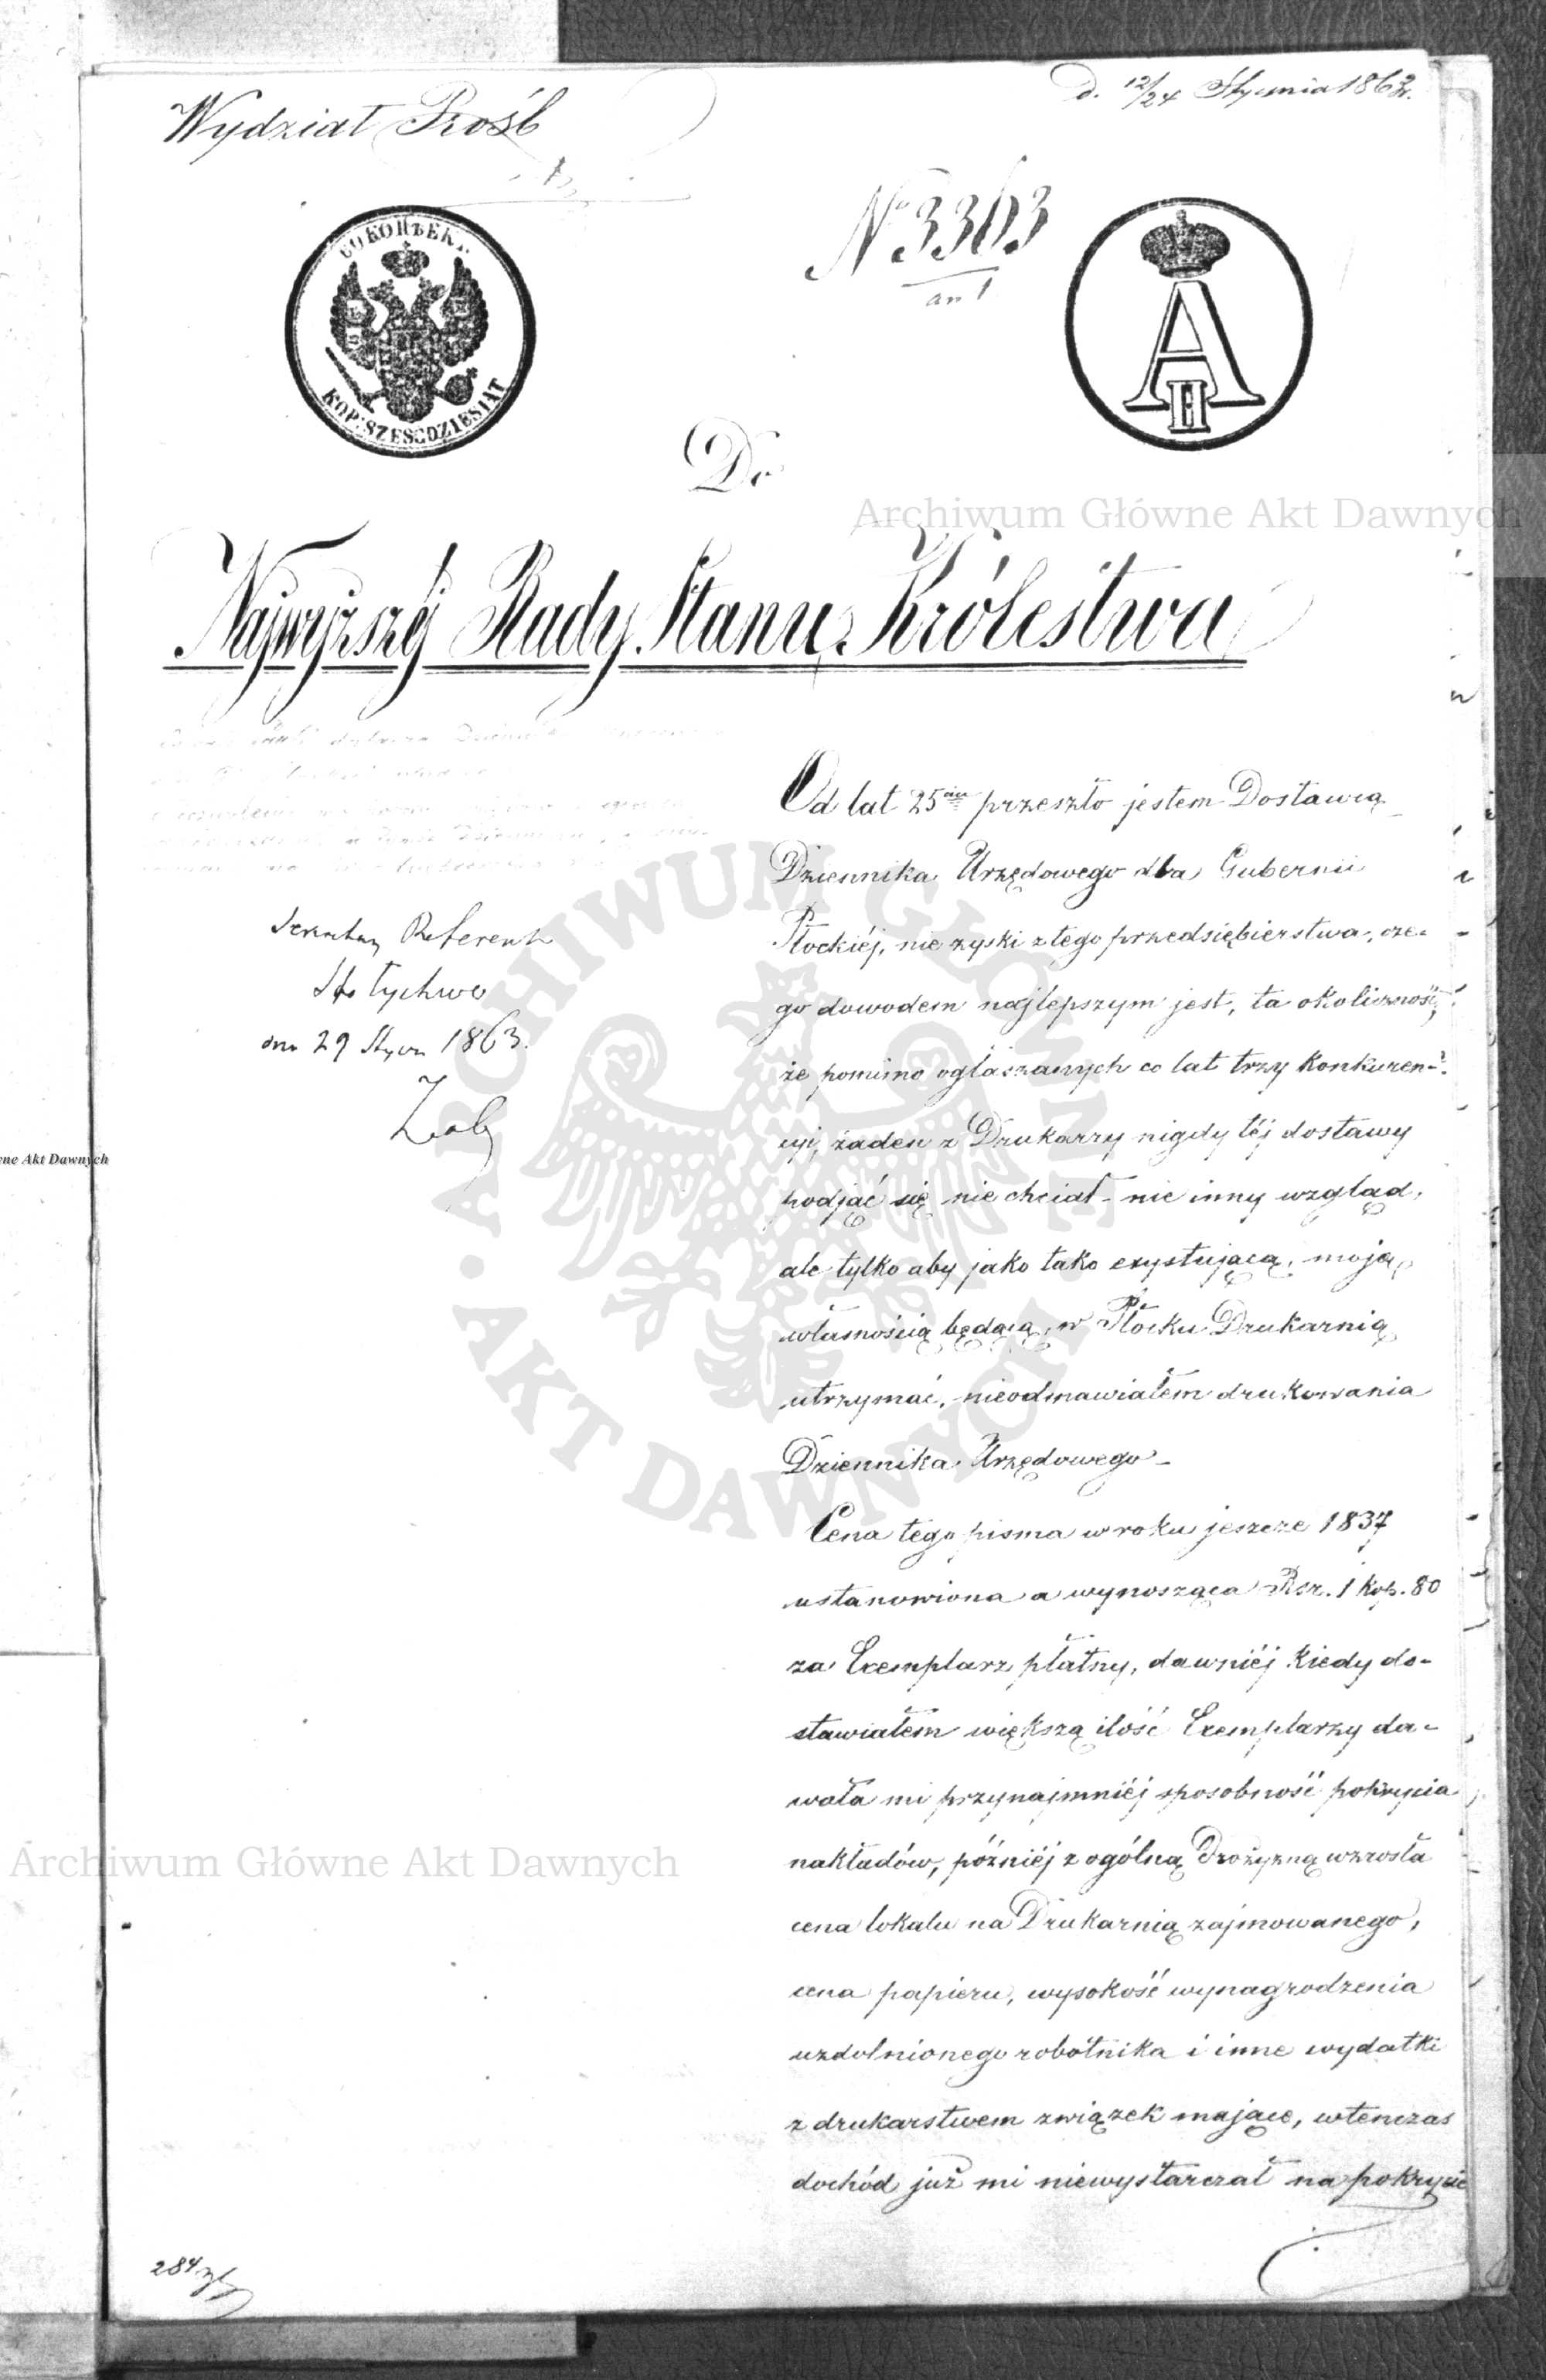 d. 12/24 Stycznia 1863 r.
Wydział Prośb
N 3363
an 1
60 КОПѢЕКЪ
KOP: SZESĆDZIESIĄT
A II
Do
Najwyższéj Rady Stanu Królestwa
Od lat 25ciu przeszło jestem Dostawcą
Dziennika Urzędowego dla Gubernii
Płockiéj, nie zyski z tego przedsiębierstwa, cze-
go dowodem najlepszym jest, ta okoliczność,
że pomimo ogłaszanych co lat trzy Konkuren-
cyi, żaden z Drukarzy nigdy téj dostawy
podjąć się nie chciał - nie inny wzgląd,
ale tylko aby jako tako exystującą, moją
własnością będącą, w Płocku Drukarnią
utrzymać, nieodmawiałem drukowania
Dziennika Urzędowego -
Cena tego pisma w roku jeszcze 1837
ustanowiona a wynosząca Rsr. 1 kop. 80
za Exemplarz płatny, dawniéj Kiedy do-
stawiałem większą ilość Exemplarzy da-
wała mi przynajmniéj sposobność pokrycia
nakładów, późniéj z ogólną Drożyzną wzrosła
cena lokalu na Drukarnią zajmowanego,
cena papieru, wysokość wynagrodzenia
uzdolnionego robotnika i inne wydatki
z drukarstwem związek mające, wtenczas
dochód już mi niewystarczał na pokrycie
Dziennika
Sekretarz Referent
dnia 29 Stycz 1863.
284
Archiwum Główne Akt Dawnych
ne Akt Dawnych
ARCHIWUM GŁÓWNE
• AKT DAWNYCH •
Archiwum Główne Akt Dawnych